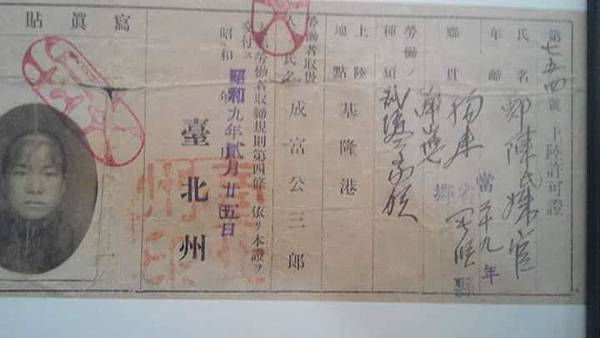 第七五四號 上陸許可證
氏名 鄭陳氏
年齡 當二十九年
鄉貫 福建省 縣 鄉
勞働ノ種類 裁縫
上陸地點 基隆港
勞働者取扱人氏名 成富公三郎
勞働者取締規則第四條ニ依リ本證ヲ
交付ス
昭和 年 月 日
昭和九年貳月廿五日
臺北州
寫眞貼